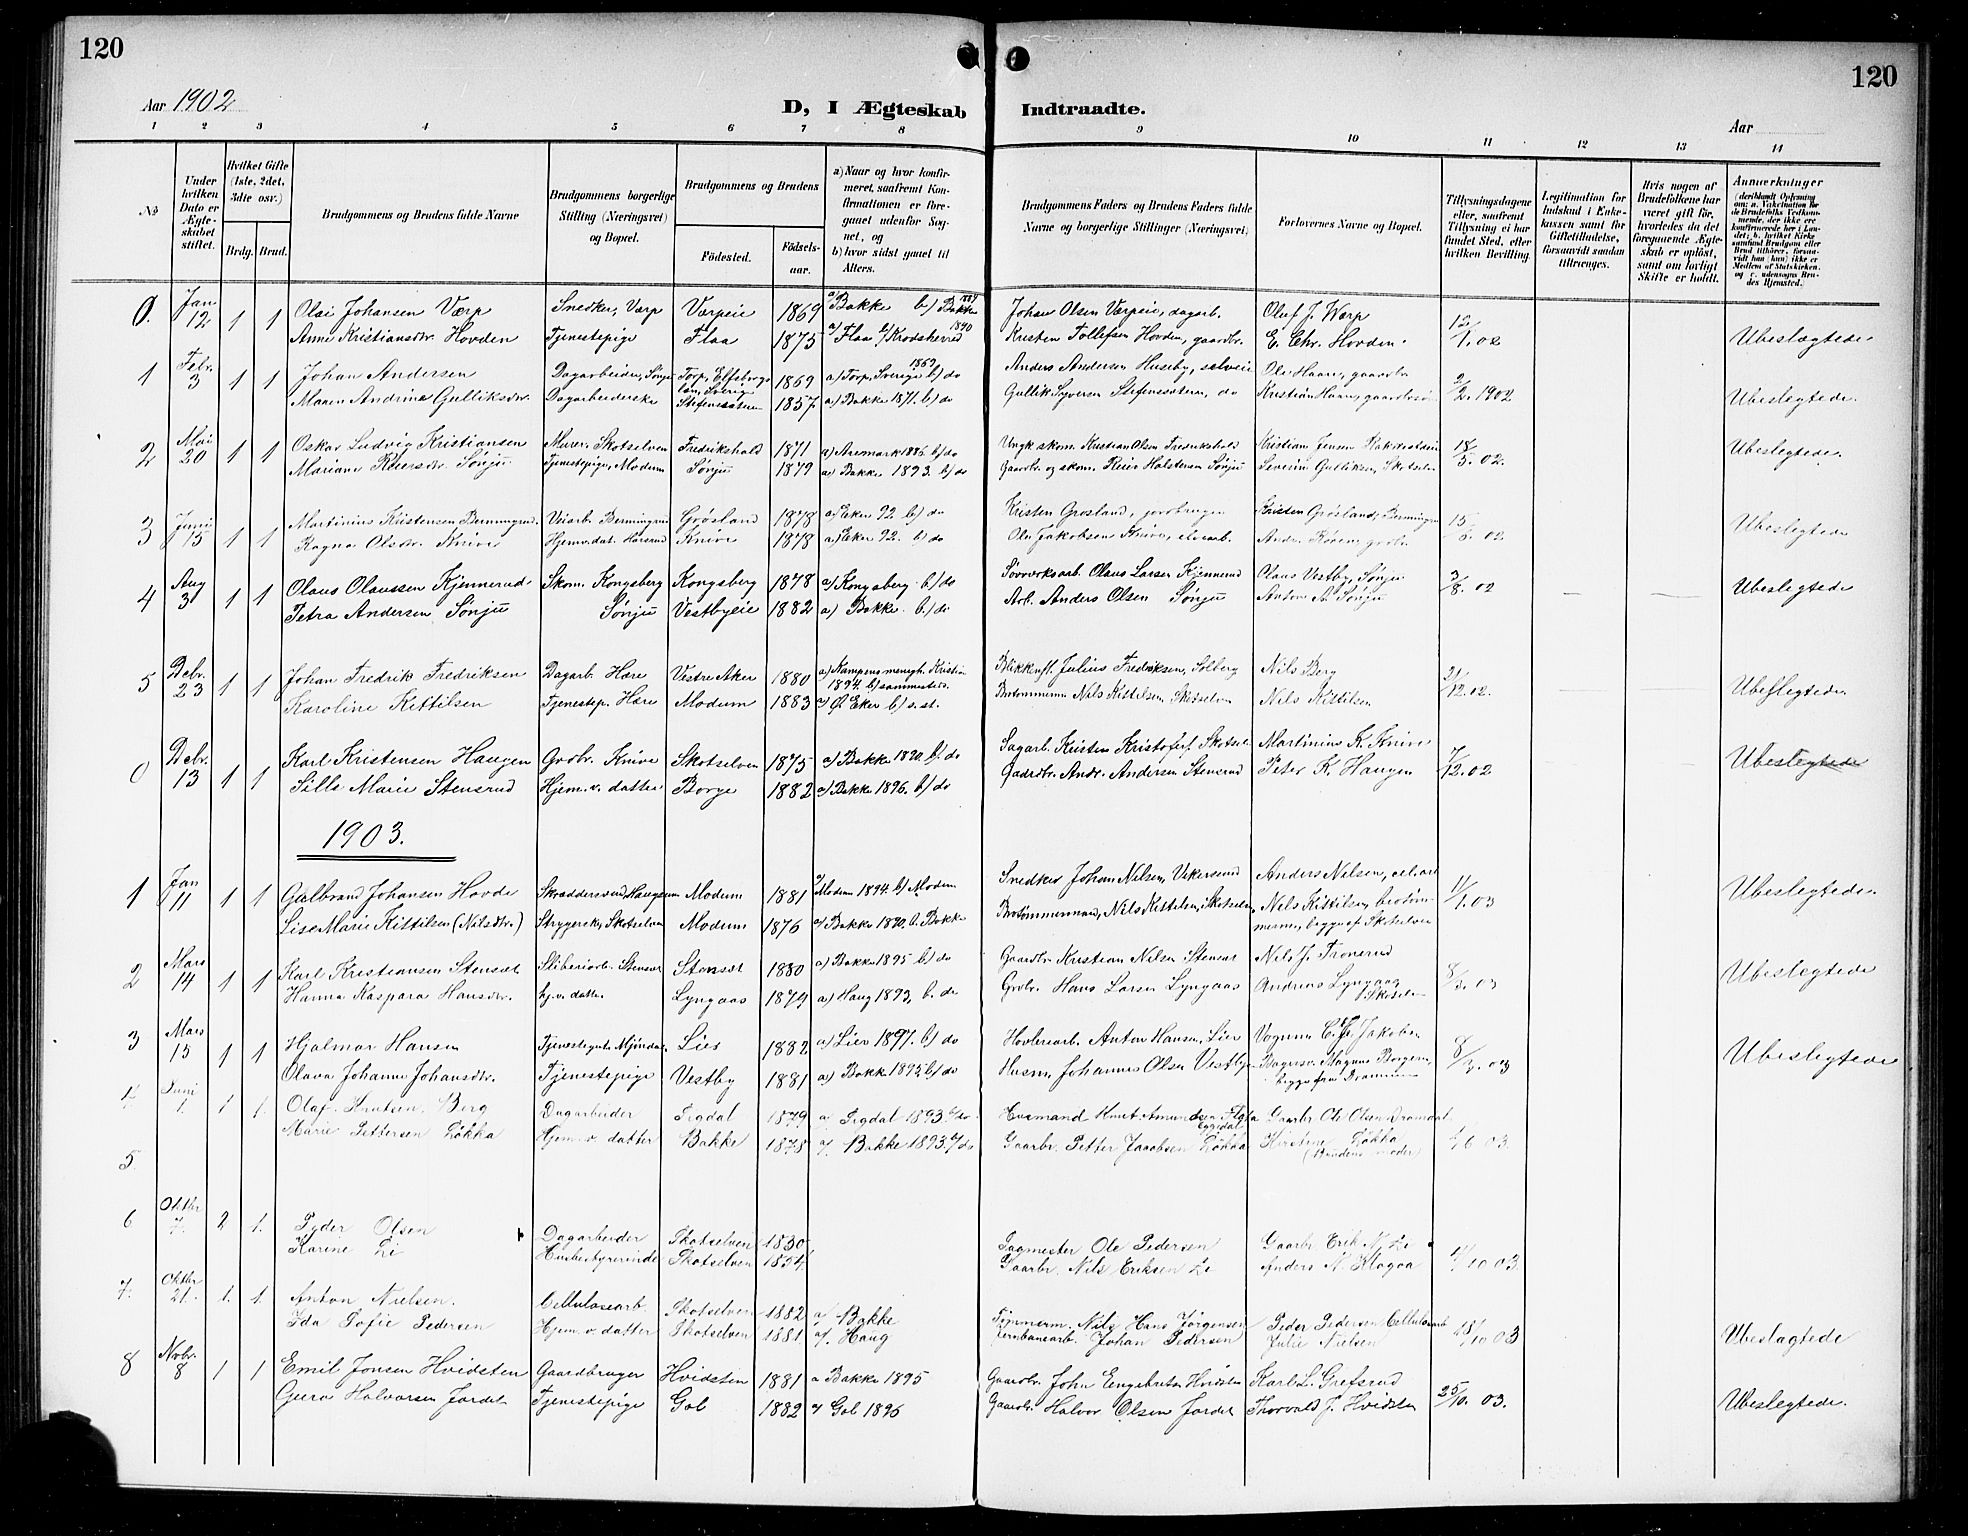 120
120
Aar 1902
D, I Ægteskab Indtraadte.
Aar
1 2 3 4 5 6 7 8 9 10 11 12 13 14
No
Under hvilken Dato er Ægteskabet stiftet.
Hvilket Gifte (1ste, 2det, 3die osv.)
Brdg. Brud.
Brudgommens og Brudens fulde Navne
Brudgommens borgerlige Stilling (Næringsvei) og Bopæl.
Brudgommens og Brudens
Födested. Födselsaar.
a) Naar og hvor konfirmeret, saafremt Konfirmationen er foregaaet udenfor Sognet, og b) hvor sidst gaaet til Alters.
Brudgommens Faders og Brudens Faders fulde Navne og borgerlige Stillinger (Næringsvei)
Forlovernes Navne og Bopæl.
Tillysningsdagene eller, saafremt Tillysning ei har fundet Sted, efter hvilken Bevilling.
Legitimation for Indskud i Enkekassen samt for Giftetilladelse, forsaavidt saadan tiltrænges.
Hvis nogen af Brudefolkene har været gift för, hvorledes da det foregaaende Ægteskab er oplöst, samt om lovligt Skifte er holdt.
Anmærkninger (deriblandt Oplysning om: a. Vakcination for de Brudefolks Vedkommende, der ikke ere konfirmerede her i Landet; b. hvilket Kirkesamfund Brudgom eller Brud tilhörer, forsaavidt han (hun) ikke er Medlem af Statskirken, og c. udensogns Brudes Hjemsted.)
0. Jan 12 1 1 Olai Johansen Værp Snedker, Værp Værpeie 1869 a) Bakke b) Bakke Johan Olsen Værpeie, dagarb. Oluf J. Værp 12/1.02
Anne Kristiansdtr. Hovden Tjenestepige Flaa 1875 a) Flaa b) Krodsherred 1890 Kristen Tollefsen Hovden, gaardbr. E. Chr. Hovden. Ubeslægtede.
1 Febr. 3 1 1 Johan Andersen Dagarbeider, Sønju Torp, Elfsborgs län, Sverig 1869 a) Torp, Sverige b) do Anders Andersen Huseby, selveie Ole Haare, gaardbr 2/2. 1902
Maren Andrine Gulliksdtr. Dagarbeiderske 1857 a) Bakke 1871. b) do Gullik Syversen do Kristian Haare, gaardbr Ubeslegtede.
2 Mai 20 1 1 Oskar Ludvig Kristiansen Murer. Skotselven Fredrikshald 1871 a) Aremark 1886 b) do Kristian Olsen Fredrikshald Kristian Jensen 18/5.02. Ubeslegtede.
Mariane Reiersdtr. Sønju Tjenestepige, Modum Sønju 1879 a) Bakke 1893. b) do Gaardbr. og skom. Reier Halstensen Sønju Severin Gulliksen, Skotselv
3 Juni 15 1 1 Martinius Kristensen Bermingrud. Veiarb. Bermingrud Grøsland 1878 a) Eker 92 b) do Kristen Grosland, jordbruger Kristen Grøsland, Bermingrud 15/6.02
Ragna Olsdtr. Knive Hjemv. dat. Knive 1878 a) Eker 92. b) do Ole Jakobsen Knive, elvearb. Andr. Ubeslegtede
4 Aug 3 1 1 Olaus Olaussen Kjennerud Skom. Kongsberg Kongsberg 1878 a) Kongsberg. b) do Sølvverksarb. Olaus Larsen Kjennerud Olaus Vestby, Sønju 3/8.02
Petra Andersen Sønju Sønju Vestbyeie 1882 a) Bakke. b) do Arb. Anders Olsen Sønju Anton A. Sønju Ubeslegtede
5 Debr. 23 1 1 Johan Fredrik Fredriksen Dagarb. Hære Vestre Aker 1880 a) Kampens menigh. Kristia 1894 b) sammesteds. Julius Fredriksen, Solberg Nils Berg 21/12.02.
Karoline Kittilsen Tjenestep. Hære Modum 1883 a) Ø. Eker b) s. st. Nils Kittilsen, Skotselven Nils Kittilsen Ubeslegtede
0 Debr. 13 1 1 Karl Kristensen Haugen Grdbr. Knive Skotselven 1875 a) Bakke 1890. b) do Sagarb. Kristen Kristofers. Skotselv Martinius K. Knive 7/12.02
Sille Marie Stensrud Hjem. v. datter Borge 1882 a) Bakke 1896. b) do Gaardbr. Andr. Andersen Stensrud Peter K. Haugen Ubeslegtede
1903.
1 Jan 11 1 1 Gulbrand Johansen Hovde Skræddersvend, Haugsund Modum 1881 a) Modum 1894 b) Modum Snedker Johan Nilsen, Vikersund Anders Nilsen, cel. arb 11/1.03
Lise Marie Kittilsen (Nilsdtr.) Strygerske, Skotselven Modum 1876 a) Bakke 1890. b. Bakke Nils Kittilsen, Skotselven, Nils Kittilsen, begge af Skotselven Ubeslegtede.
2 Mars 14 1 1 Karl Kristiansen Stensæt Sliberiarb. Stensæt Stensæt 1880 a) Bakke 1895 b) do Gaardbr Kristian Nilsen Stensæt Nils J. Tronrud 8/3.03
Hanna Kaspara Hansdtr. hj. v. datter Lyngaas 1879 a) Haug 1893, b. do Grdbr. Hans Larsen Lyngaas Andreas Lyngaas Skotselv Ubeslegtede
3 Mars 15 1 1 Hjalmar Hansen Tjenestegut Mjøndal Lier 1882 a) Lier 1897. b) do Høvleriarb. Anton Hansen, Lier Vognm. Jakobsen 8/3.03
Olava Johanne Johansdtr. Tjenestepige Vestby 1881 a) Bakke 1895. b) do Husm. Johannes Olsen Vestbyeie Magnus Borgersen begge fra Drammen Ubeslegtede
4. Juni 1. 1 1. Olaf Knutsen Berg Dagarbeider Sigdal 1879 a/ Sigdal 1893. b/ do. Husmand Knut Amundsen Eggedal Gaarbr Ole Olsen Dramdal
Marie Pettersen Løkka Hjem. v. datter Bakke 1878 a/. Bakke 1893. b/ do Gaarbr. Petter Jacobsen Løkka Kirstine Løkka (Brudens moder) 1/6 03.
5.
6 Oktbr 7. 2 1. Peder Olsen Dagarbeider Skotselven 1830 Sagmester Ole Pedersen Gaarbr Erik N. Li
Karine Li Husbestyrerinde Skotselven 1854 Gaarbr. Nils Eriksen Li Anders N. Klogoa 4/10 03.
7. Oktbr 21. 1. 1. Anton Nielsen. Cellulosearb. Skotselven 1882 a/ Bakke Tømmerm. Nils Hans Jørgensen Peder Pedersen Cellulosearb
Ida Sofie Pedersen Hjem. v. datter Skotselven 1881 a/. Haug Jernbanearb. Johan Pedersen Julie Nielsen 18/10 03 Ubeslægtede
8 Novbr. 8 1 1 Emil Jonsen Hvidsten Gaardbruger Hvidsten 1881 a Bakke 1895 Gaardbr. John Engebretsen Hvidsten Karl L. Grefsrud
Guro Halvorsen Jordet Tjenestepige Gol 1882 a/ Gol 1896 Gaardbr. Halvor Olsen Jordet Thorvald J. Hvidsten 25/10.03. Ubeslegtede.